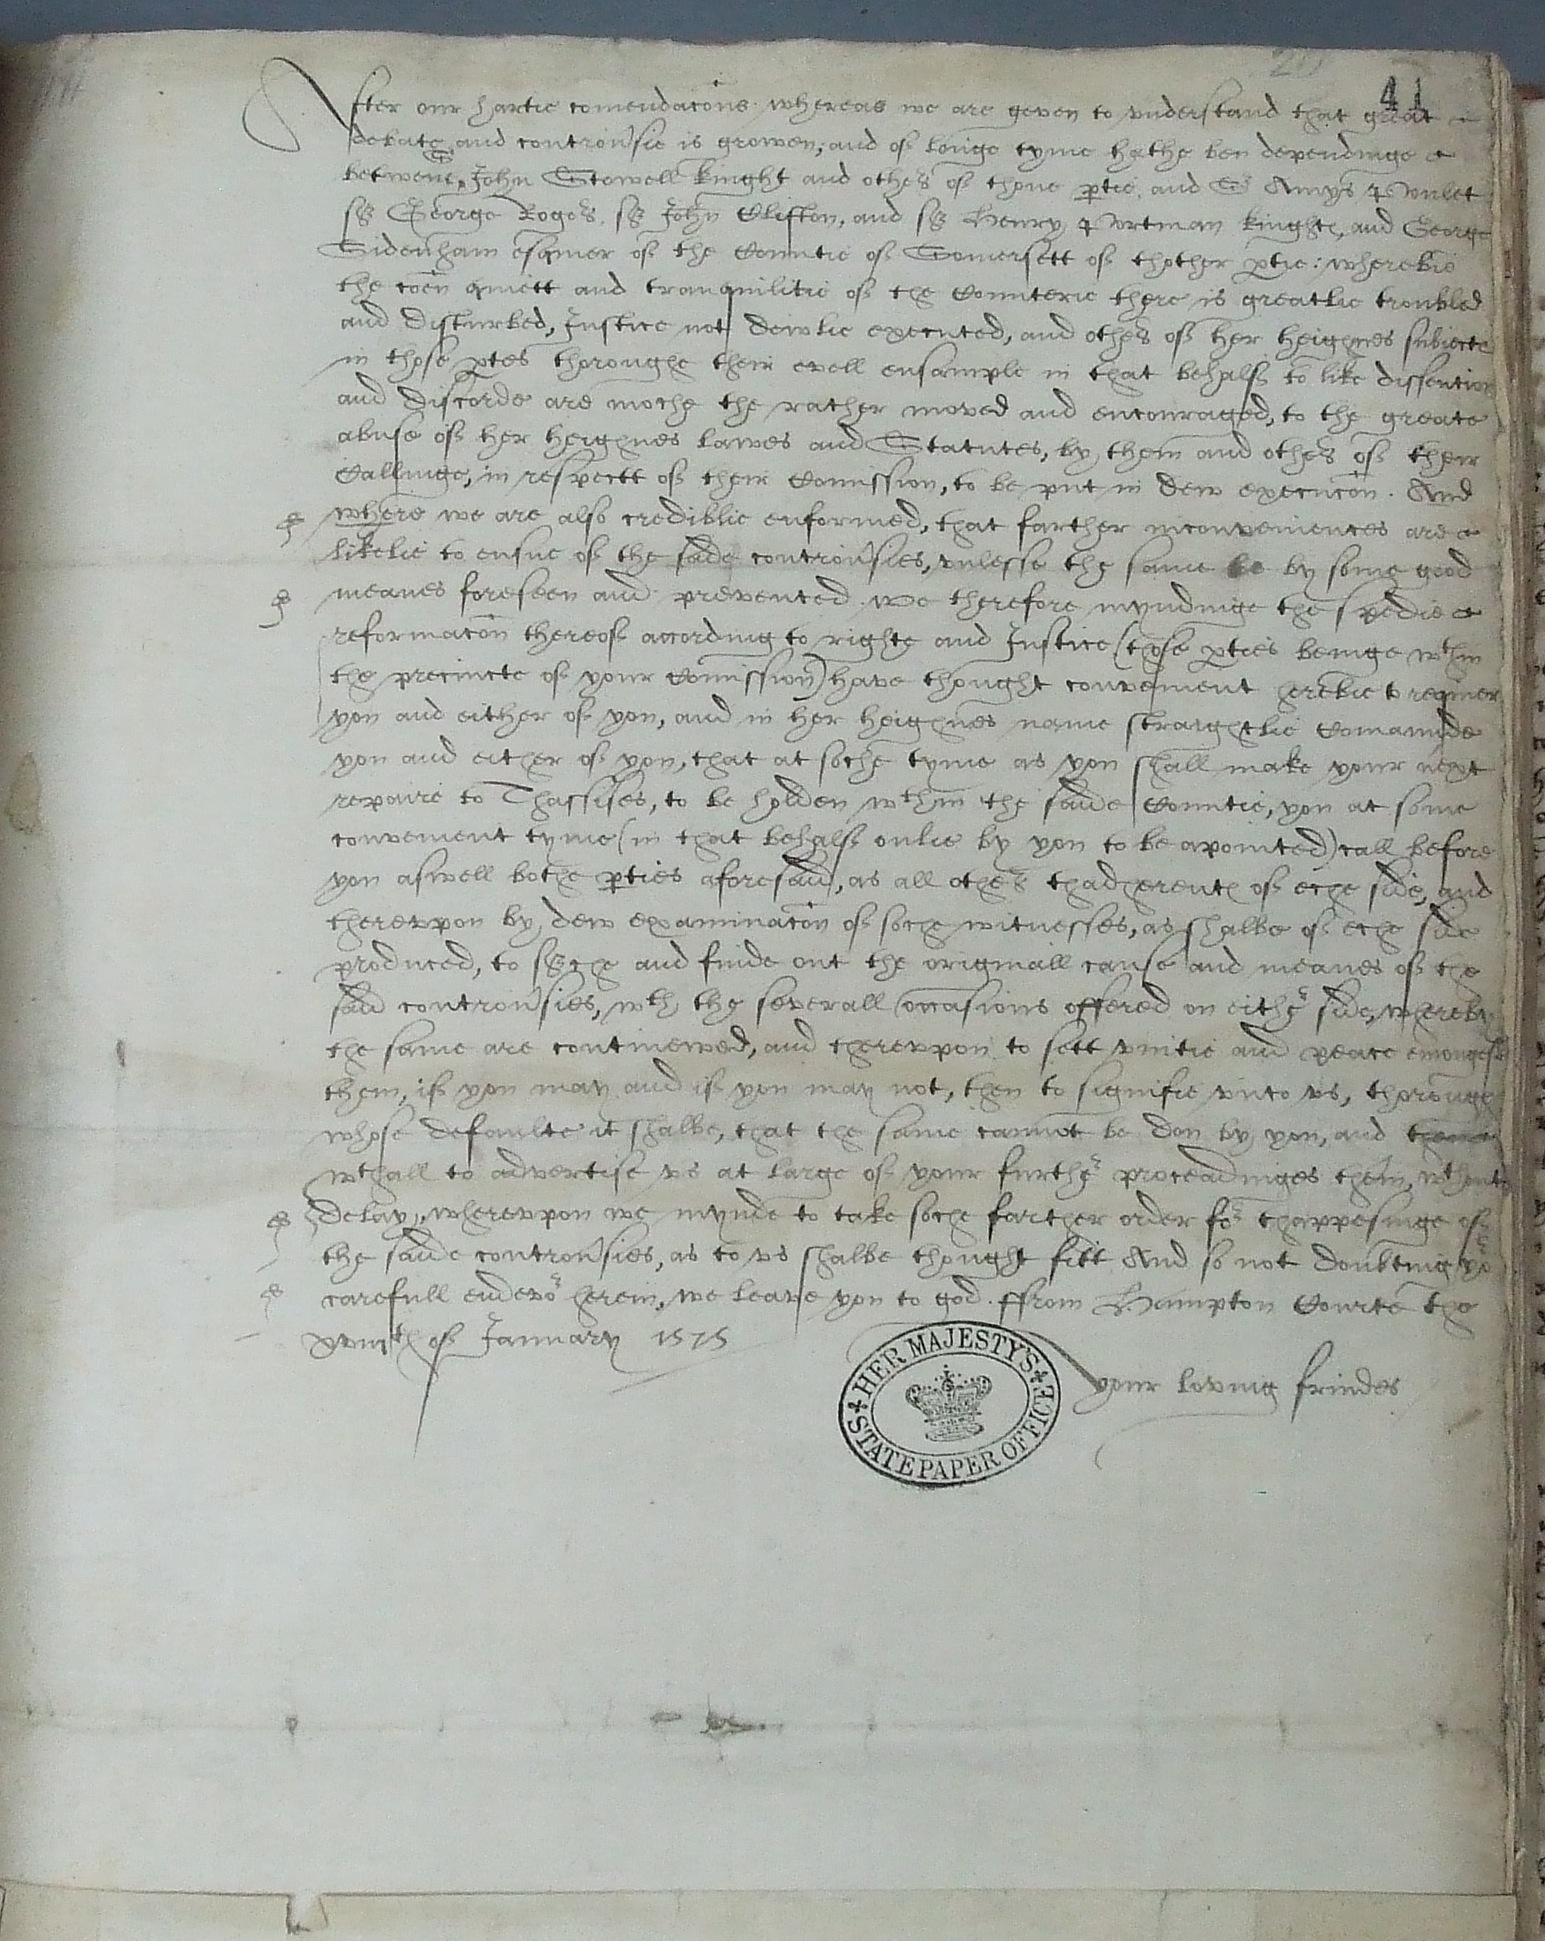 41
After our hartie comendacons whereas we are geven to vnderstand that great
debate and controu'sie is growen, and of longe tyme hathe ben dependinge
betwene Sr John Stowell knight and others of thone ptie, and Sr Amys Poulet
sr George Rogers, sr John Clifton, and sr Henry Portman knights, and George
Sidenham esquier of the Countie of Somersett of thother ptie: wherebie
the coen quiett and tranquilitie of the Counterie there is greatlie troubled
and disturbed, Justice not dewlie executed, and others of her heighnes subiects
in those ptes thoroughe their evell ensample in that behalf to like dissention
and discorde are moche the rather moved and encouraged, to the greate
abuse of her heighnes lawes and Statutes, by them and others of their
Callinge, in respectt of their Comission, to be put in dew execucon. And
where we are also crediblie enformed, that farther inconveniences are
likelie to ensue of the sade controu'sies, vnlesse the same be by some good
meanes foreseen and prevented. We therefore myndinge the spedie
reformacon thereof according to righte and Justice (those pties beinge wthin
the precincte of your Comission) have thought convenient herebie to requier
you and either of you, and in her heighnes name straightlie Comaunde
you and either of you, that at soche tyme as you shall make your next
repaire to Thassises, to be holden wthin the saide Countie, you at some
convenient tyme (in that behalf onlie by you to be apointed) call before
you aswell bothe pties aforesaid, as all others thadherents of eche side, and
therevpon by dew examinacon of soche witnesses, as shalbe of eche side
produced, to serche and finde out the originall cause and meanes of the
said controu'sies, wth the severall occasions offered on eithr side, whereby
the same are continewed, and therevpon to sett vnitie and peace emongest
them, if you may and if you may not, then to signifie vnto vs, thorough
whose defaulte it shalbe, that the same cannot be don by you, and
wthall to advertise vs at large of your furthr proceadinges therin, wthout
delay, wherevpon we mynde to take soche farther order for thappesinge of
the saide controu'sies, as to vs shalbe thought fitt And so not doubting yor
carefull endevor herein, we leave you to god. ffrom Hampton Courte the
xviiith of January 1575
your loving frindes
HER MAJESTY'S
STATE PAPER OFFICE